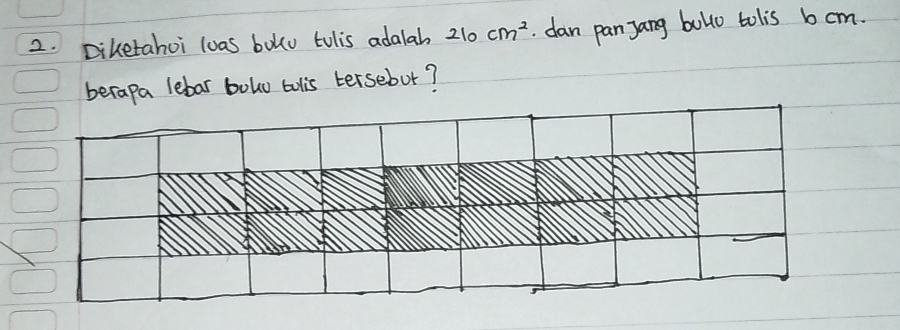 2. Diketahui luas buku tulis adalah 210 cm². dan panjang buku tulis 6 cm.
berapa lebar buku tulis tersebut?